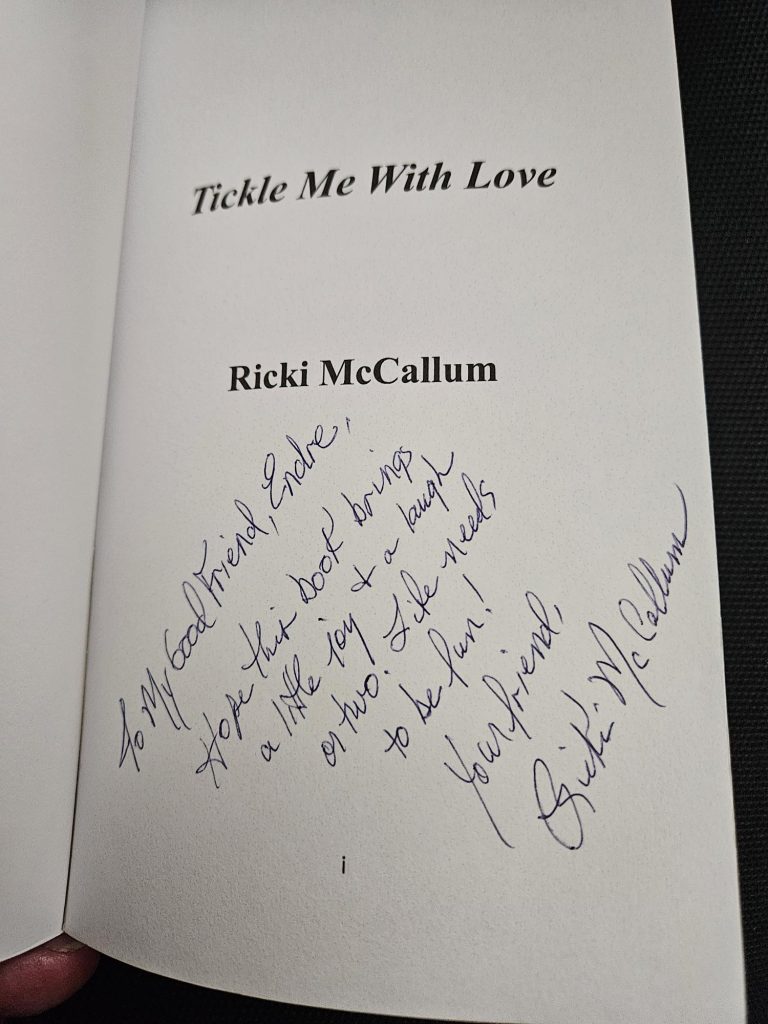 Tickle Me With Love
Ricki McCallum
To My Good Friend, Endre,
Hope this book brings
a little joy & a laugh
or two. Life needs
to be fun!
Your friend,
Ricki McCallum
i